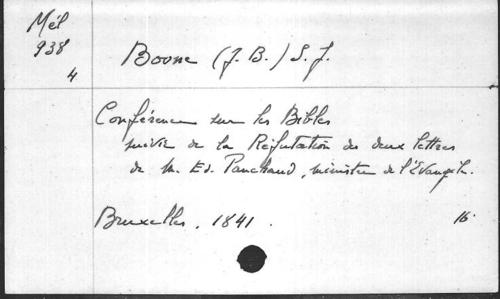 Mél
938
4
Boone (J. B.) S. J.
Conférence sur les Bibles
suivie de la Réfutation de deux lettres
de M. Ed. Panchaud, ministre de l'Evangile.
Bruxelles, 1841.
16.